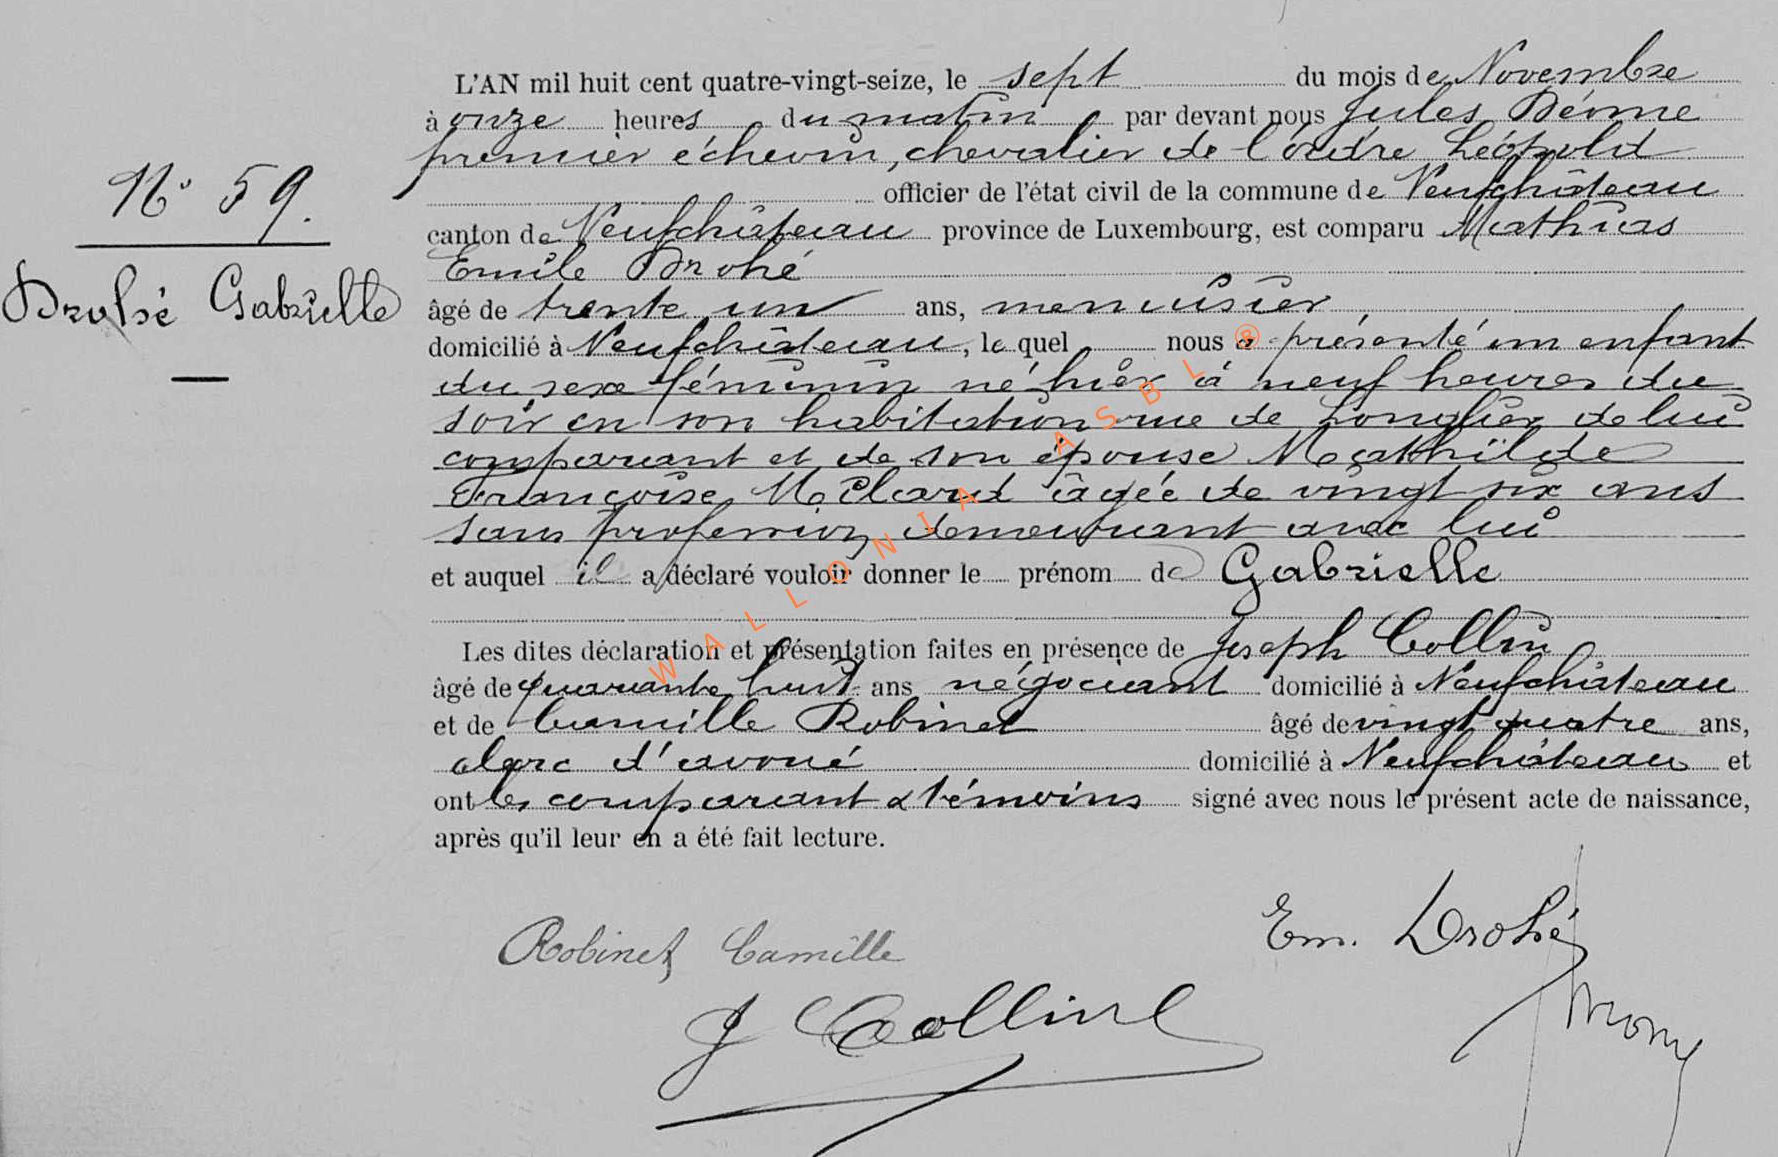 L'AN mil huit cent quatre-vingt-seize, le sept du mois de Novembre
à onze heures du matin par devant nous Jules
premier échevin, chevalier de l'ordre Léopold
officier de l'état civil de la commune de Neufchâteau
canton de Neufchâteau province de Luxembourg, est comparu Mathias
Emile Drohé
N° 59.
Drohé Gabrielle
âgé de trente un ans, menuisier
domicilié à Neufchâteau, le quel nous a présenté un enfant
du sexe féminin né hier à neuf heures du
soir en son habitation rue de Longlier de lui
comparant et de son épouse Mathilde
Françoise âgée de vingt six ans
sans profession demeurant avec lui
et auquel il a déclaré vouloir donner le prénom de Gabrielle
Les dites déclaration et présentation faites en présence de Joseph Collin
âgé de quarante huit ans négociant domicilié à Neufchâteau
et de Camille Robinet âgé de vingt quatre ans,
clerc d'avoué domicilié à Neufchâteau et
ont les comparant & témoins signé avec nous le présent acte de naissance,
après qu'il leur en a été fait lecture.
Em. Drohé
Robinet Camille
J Collin
WALLONIA ASBL ®